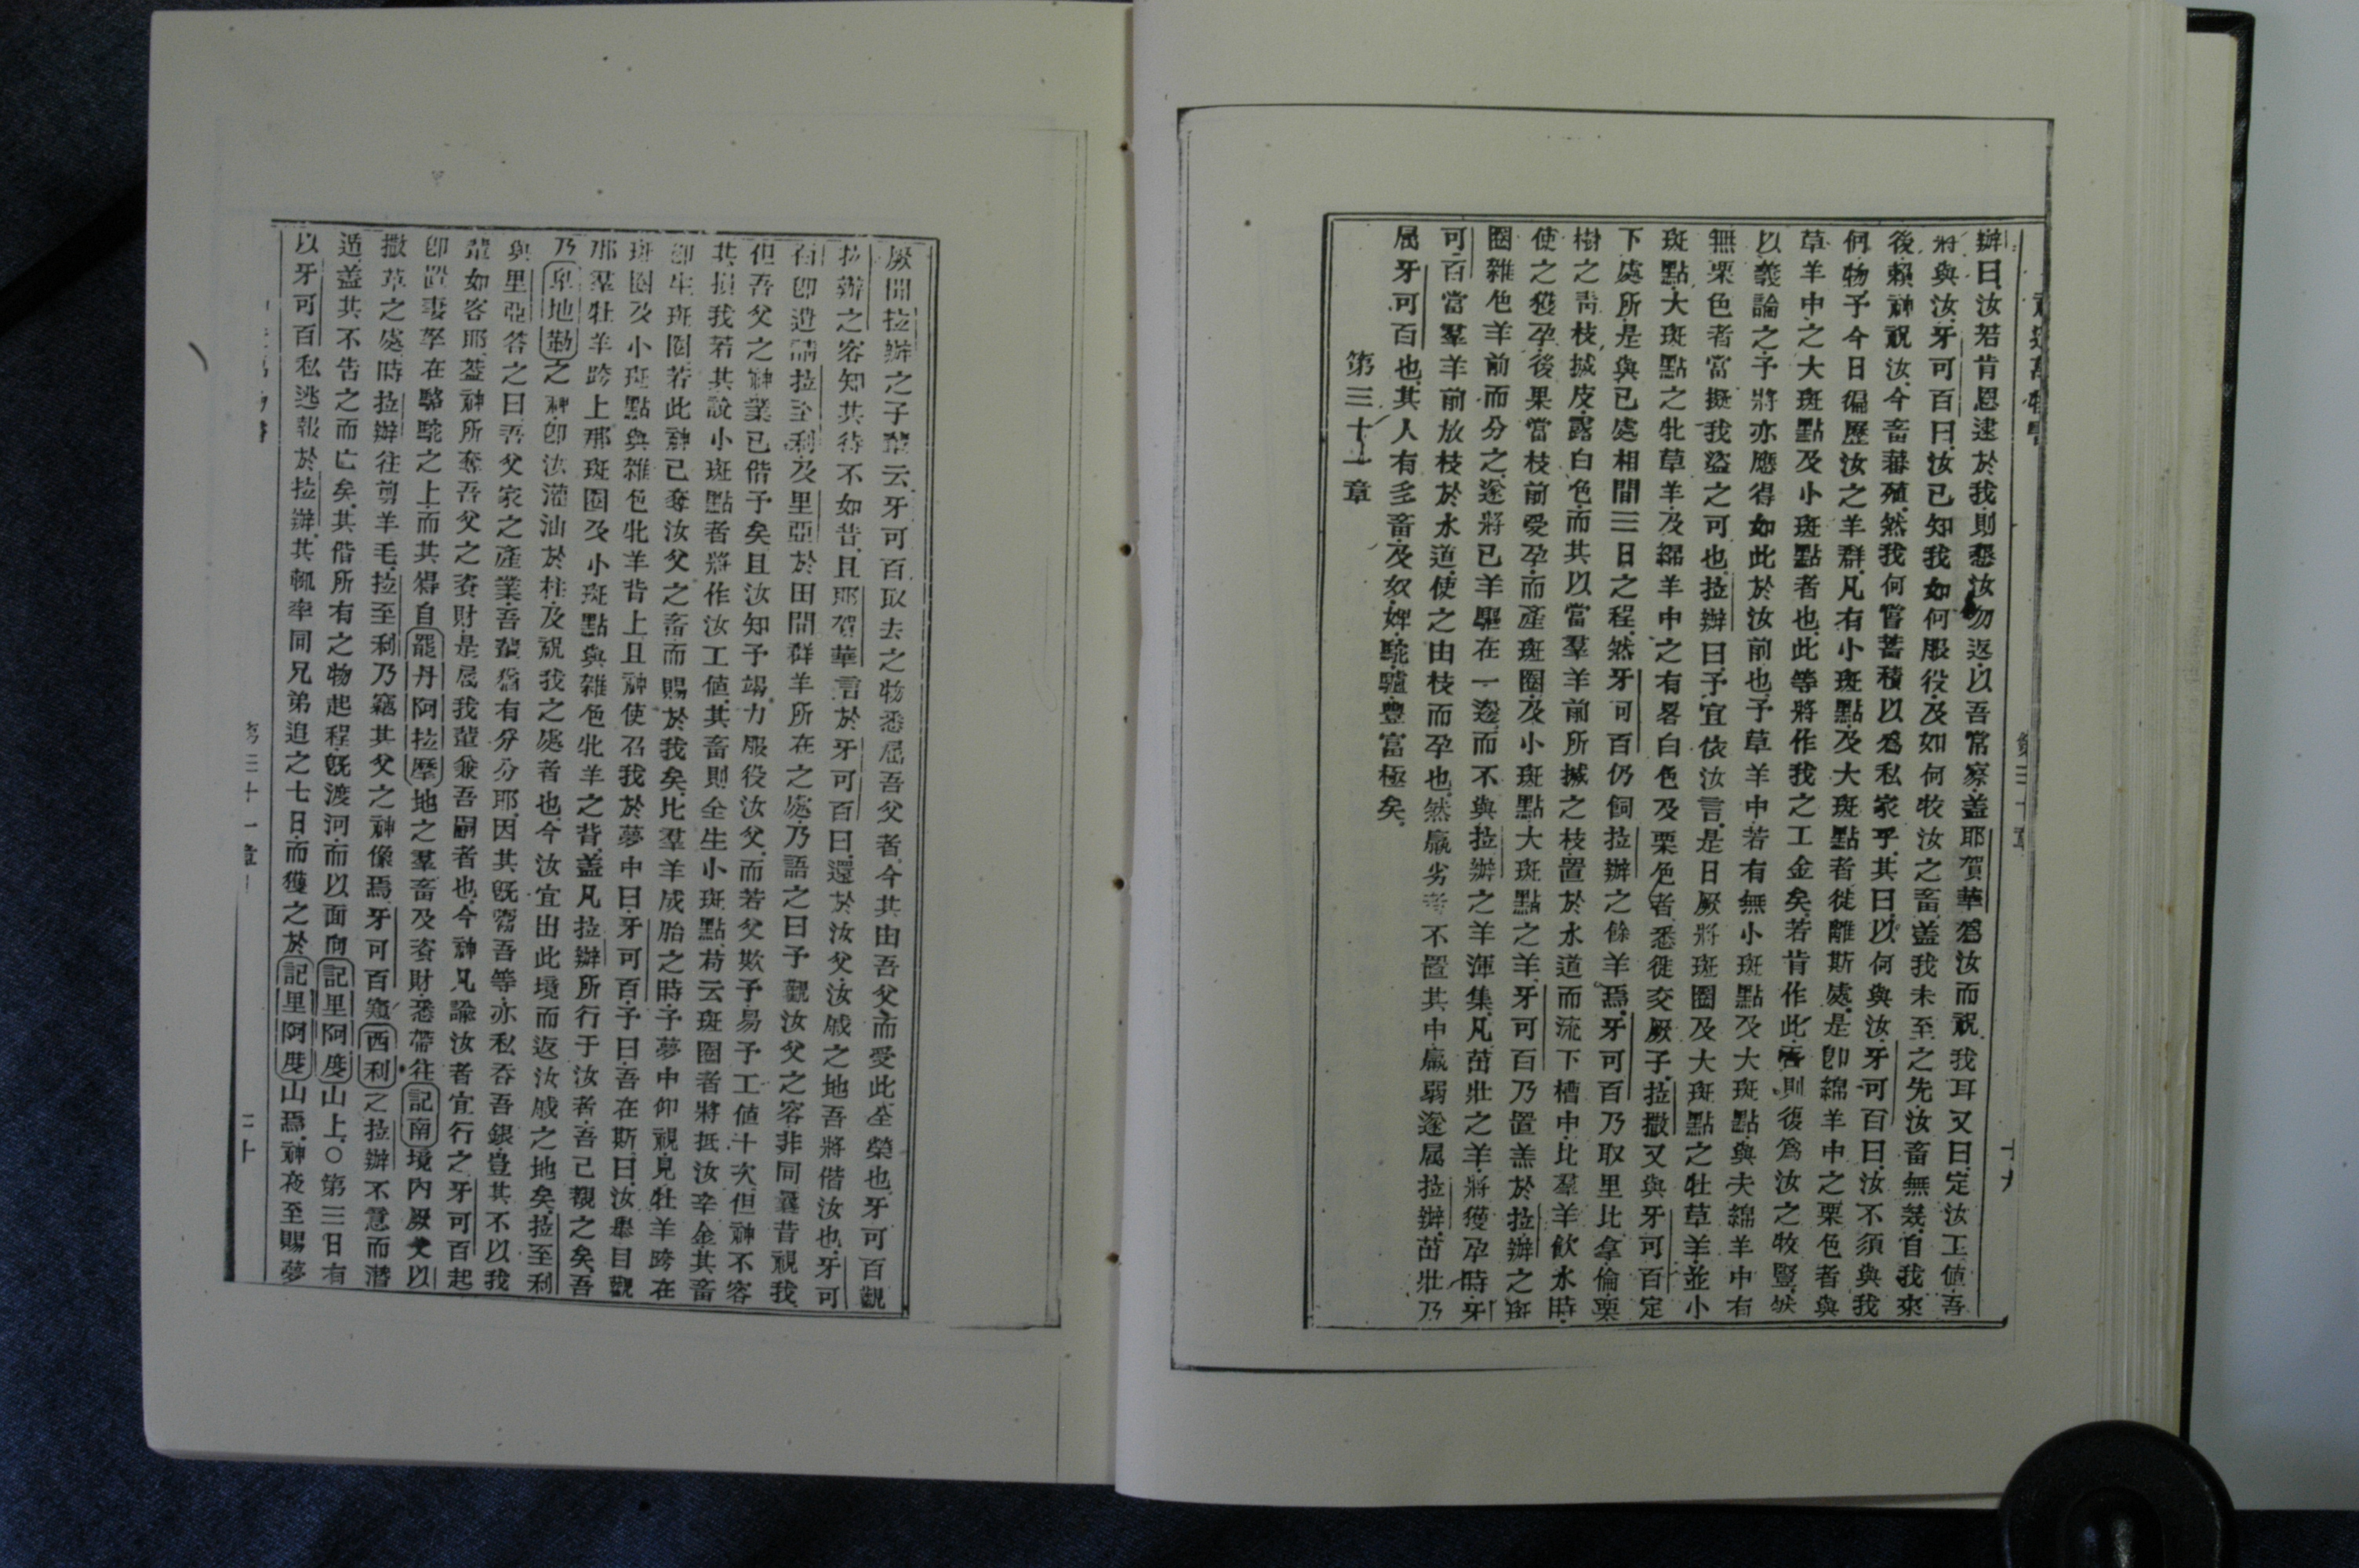 神造萬物書 第三十章 十九
辦曰汝若肯恩逮於我則懇汝勿返以吾常察盖耶賀華爲汝而祝我耳又曰定汝工値吾
將與汝牙可百曰汝已知我如何服役及如何牧汝之畜盖我未至之先汝畜無幾自我來
後賴神祝汝今畜蕃殖然我何嘗蓄積以爲私家乎其曰以何與汝牙可百曰汝不須與我
何物予今日徧歷汝之羊群凡有小斑點及大斑點者徙離斯處是卽綿羊中之栗色者與
草羊中之大斑點及小斑點者也此等將作我之工金矣若肯作此者則復爲汝之牧豎然
以義論之予將亦應得如此於汝前也予草羊中若有無小斑點及大斑點與夫綿羊中有
無栗色者當擬我盜之可也拉辦曰予宜依汝言是日厥將斑圈及大斑點之牡草羊並小
斑點大斑點之牝草羊及綿羊中之有畧白色及栗色者悉徙交厥子拉撒又與牙可百定
下處所是與已處相間三日之程然牙可百仍飼拉辦之餘羊焉牙可百乃取里比拿倫栗
樹之靑枝搣皮露白色而其以當羣羊前所搣之枝置於水道而流下槽中比羣羊飮水時
使之獲孕後果當枝前愛孕而產斑圈及小斑點大斑點之羊牙可百乃置羔於拉辦之斑
圈雜色羊前而分之遂將已羊驅在一邊而不與拉辦之羊渾集凡茁壯之羊將獲孕時牙
可百當羣羊前放枝於水道使之由枝而孕也然羸劣者不置其中羸弱遂属拉辦茁壯乃
屬牙可百也其人有多畜及奴婢駝驢豐富極矣
第三十一章
厥聞拉辦之子輩云牙可百取去之物悉屬吾父者今其由吾父而受此荃榮也牙可百觀
拉辦之容知其待不如昔且耶賀華言於牙可百曰還於汝父汝戚之地吾將偕汝也牙可
百卽遣請拉至利及里亞於田間群羊所在之處乃語之曰予觀汝父之容非同曩昔視我
但吾父之神業已偕予矣且汝知予竭力服役汝父而若父欺予易予工値十次但神不容
其損我若其說小斑點者將作汝工値其畜則全生小斑點苟云斑圈者將抵汝辛金其畜
卽生斑圈若此神已奪汝父之畜而賜於我矣比羣羊成胎之時予夢中仰視見牡羊跨在
斑圈及小斑點與雜色牝羊背上且神使召我於夢中曰牙可百予曰吾在斯曰汝舉目觀
那羣牡羊跨上那斑圈及小斑點與雜色牝羊之背盖凡拉辦所行于汝者吾已覩之矣吾
乃卑地勒之神卽汝灌油於柱及祝我之處者也今汝宜出此境而返汝戚之地矣拉至利
與里亞答之曰吾父家之產業吾輩猶有分分耶因其旣鬻吾等亦私吞吾銀豈其不以我
輩如客耶蓋神所奪吾父之資財是屬我輩兼吾嗣者也今神凡論汝者宜行之牙可百起
卽置妻孥在駱駝之上而其得自罷丹阿拉摩地之羣畜及資財悉帶往記南境內厥父以
撒草之處時拉辦往剪羊毛拉至利乃竊其父之神像焉牙可百窺西利之拉辦不意而潛
遁盖其不告之而亡矣其偕所有之物起程旣渡河而以面向記里阿度山上○第三日有
以牙可百私逃報於拉辦其輒率同兄弟追之七日而獲之於記里阿度山焉神夜至賜夢
第三十一章 二十